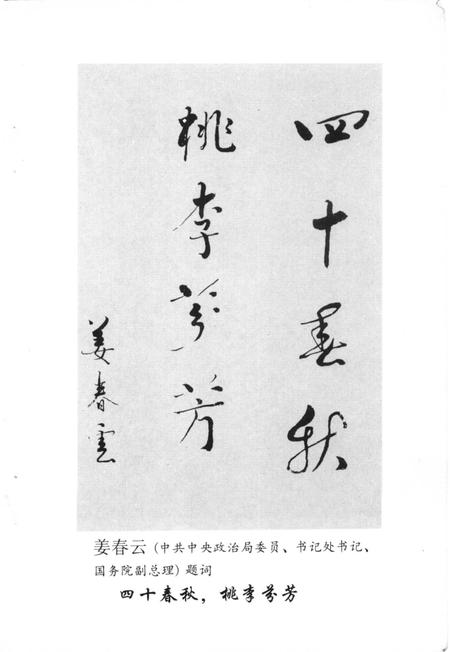 四十春秋
桃李芬芳
姜春雲
姜春云(中共中央政治局委员、书记处书记、
国务院副总理)题词
四十春秋，桃李芬芳